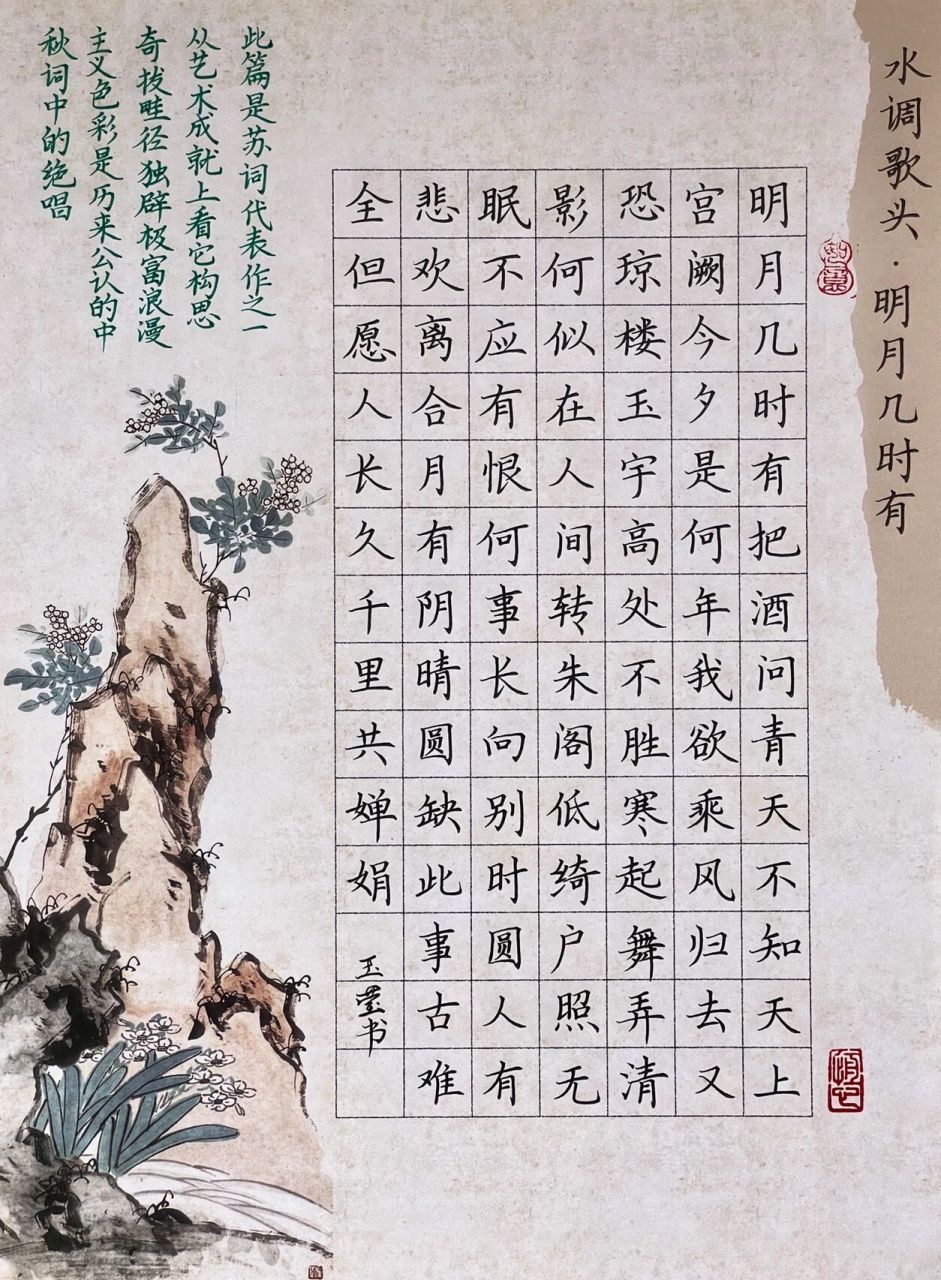 水调歌头·明月几时有
明月几时有把酒问青天不知天上
宫阙今夕是何年我欲乘风归去又
恐琼楼玉宇高处不胜寒起舞弄清
影何似在人间转朱阁低绮户照无
眠不应有恨何事长向别时圆人有
悲欢离合月有阴晴圆缺此事古难
全但愿人长久千里共婵娟
玉莹书
此篇是苏词代表作之一
从艺术成就上看它构思
奇拔畦径独辟极富浪漫
主义色彩是历来公认的中
秋词中的绝唱